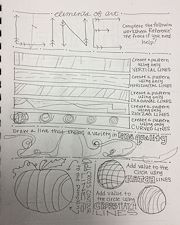 elements of art:
LINE
Complete the following
worksheet. Reference
the front if you need
help!
Create a pattern
using only
VERTICAL LINES
Create a pattern
using only
HORIZONTAL LINES
Create a pattern
using only
DIAGONAL LINES
Create a pattern
using only
ZIGZAG LINES
Create a pattern
using only
CURVED LINES
Draw a line that shows a variety in
Add value to the
circle using
LINES
Add value
to the circle
using
LINES